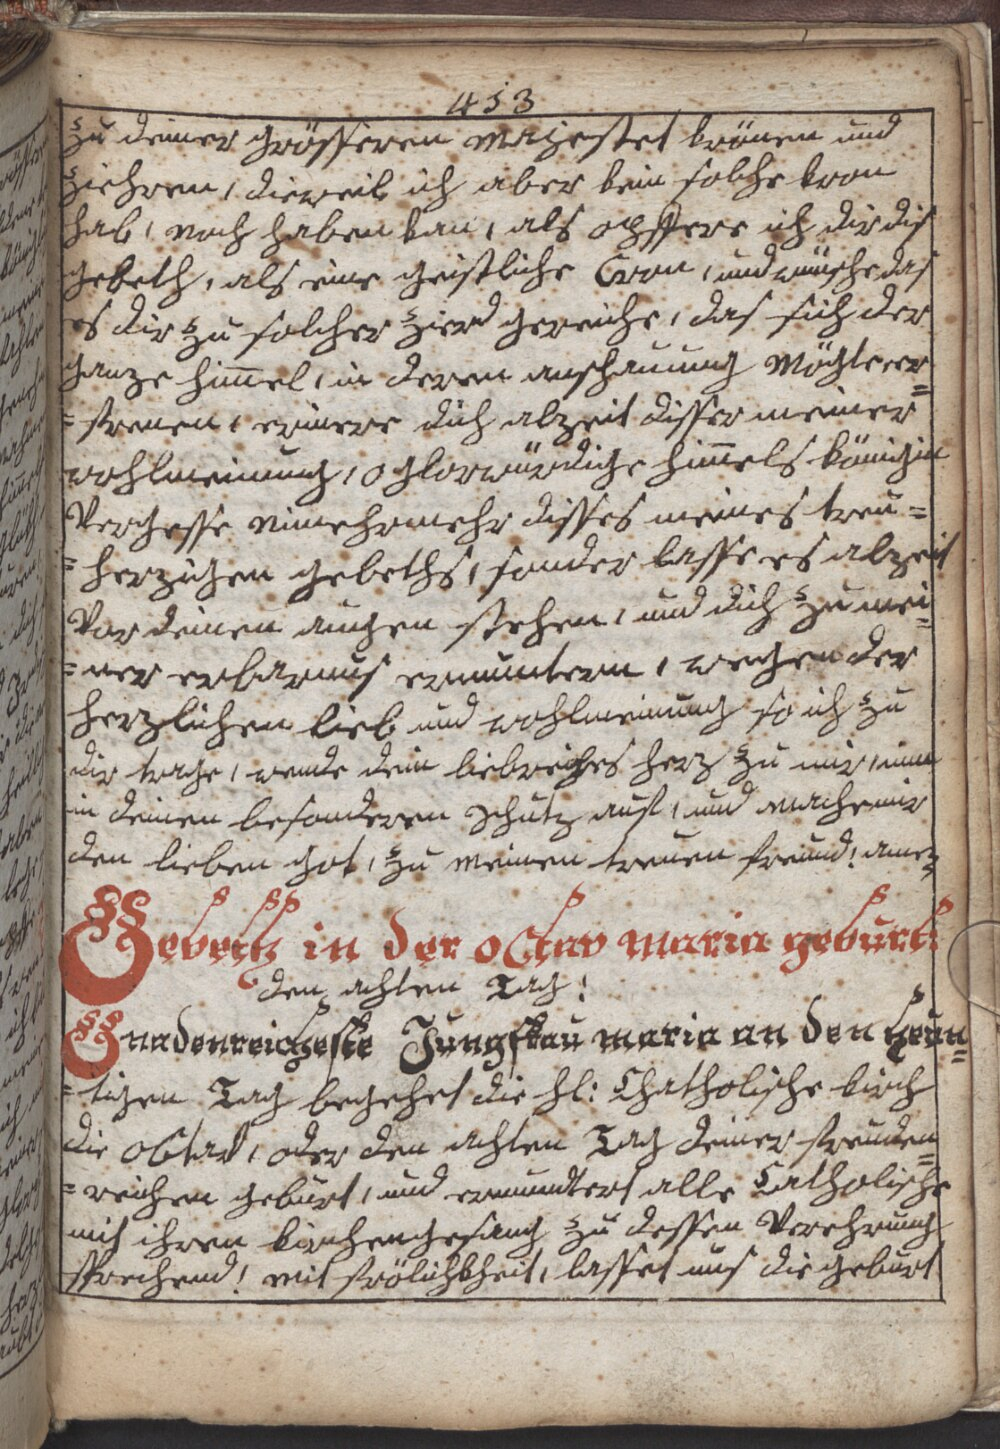 453
zu deiner grösseren Majestet krönen und
ziehren, dieweil ich aber kein solche kron
hab, noch haben kan, als opffere ich dir dis
gebeth, als eine geistliche Cron, und wüsche das
es dir zu solcher zierd gereiche, das sich der
ganze him̄el, in deren anschauung Mögte er=
=freuen, erinere dich alzeit disser meiner
wohlmeinung, o glorwürdige him̄els königin
Vergesse nimehrmehr disses meines treu=
=herzigen gebeths, sonder lasse es alzeit
Vor deinen augen stehen, und dich zu mei=
=ner erbarnus ermuntern, wegen der
herzlichen lieb und wohlmeinung so ich zu
dir trage, wende dein liebreiches herz zu mir, nim
in deinen besonderen schutz auf, und mache mir
den lieben got, zu meinen treuen freund! amen
Gebeth in der octav maria geburt:
den achten Tag!
Gnadenreicheste Jungfrau maria an den heün=
=tigen Tag begehet die hl: Chatholische kirch
die octav, oder den achten Tag deiner freuden=
=reichen geburt, und ermundtert alle Catholische
mit ihren kirchengesang zu dessen Verehrung
sprechend! mit frölichkheit, lasset uns die geburt